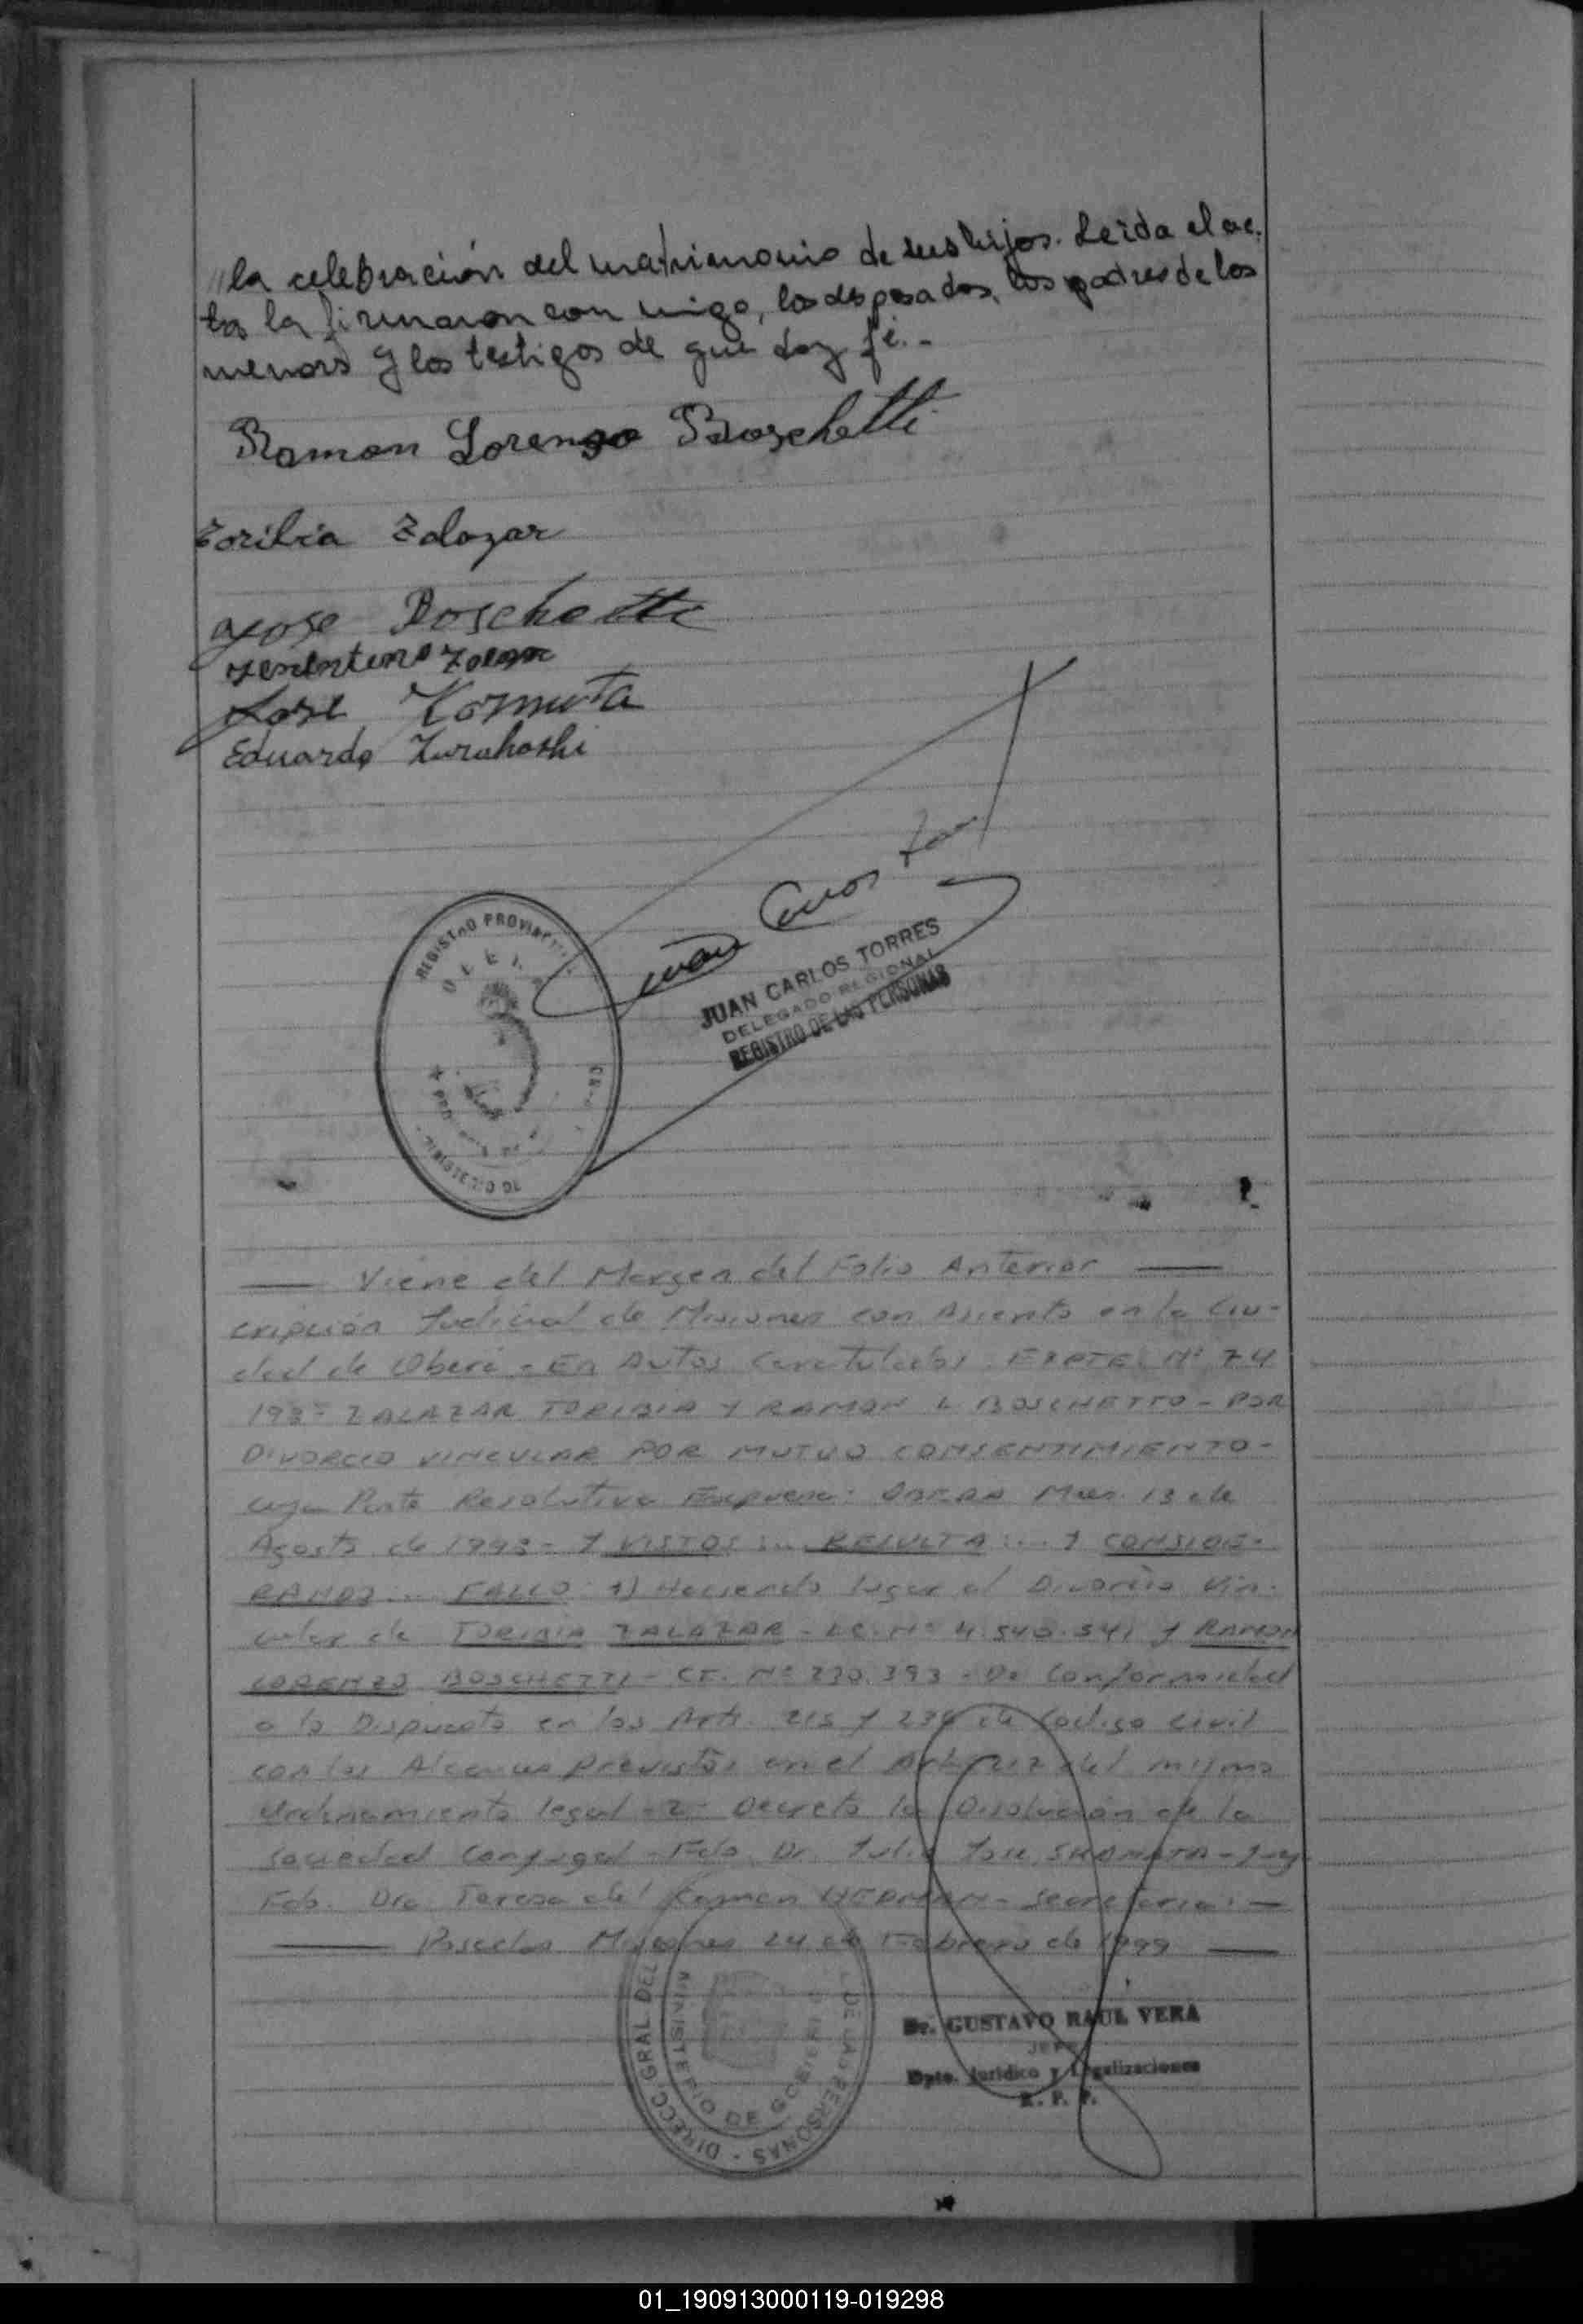 //la celebración del matrimonio de sus hijos. Leída el ac.
ta la firmaron con migo, los desposados, los padres de los
menors y los testigos de que doy fé.-
Ramon Lorenzo Boschetti
Toribia Zalazar
Jose Boschetti
Jose Komuta
Eduardo Kurahashi
Juan Carlos
JUAN CARLOS TORRES
DELEGADO REGIONAL
REGISTRO DE LAS PERSONAS
REGISTRO PROVINCIAL
— Viene del Margen del Folio Anterior —
cripción Judicial de Misiones con Asiento en la Ciu-
dad de Oberá - En Autos Caratulados EXPTE. Nº 74
ZALAZAR TORIBIA Y RAMON L BOSCHETTO - POR
DIVORCIO VINCULAR POR MUTUO CONSENTIMIENTO-
cuya Parte Resolutiva Expresa: OBERA Mnes. 13 de
Agosto de 1998 - Y VISTOS:... RESULTA:... Y CONSIDE-
RANDO:... FALLO: 1) Haciendo lugar al Divorcio Vin-
cular de TORIBIA ZALAZAR - LC. Nº 4.540.541 y RAMON
LORENZO BOSCHETTI - CI. Nº 230.393 - De Conformidad
a lo Dispuesto en los Arts. 215 y 236 de Código Civil
con los Alcances previstos en el Art. 217 del mismo
Ordenamiento legal - 2- Decreto la Disolución de la
Sociedad Conyugal - Fdo. Dr. Julio José - Juez
Fdo. Dra. Teresa del Carmen - Secretaria: —
— Posadas Misiones 24 de Febrero de 1999 —
DIRECC. GRAL DEL DE LAS PERSONAS
MINISTERIO DE GOBIERNO
Dr. GUSTAVO RAUL VERA
JEFE
Dpto. Jurídico y Legalizaciones
R. P. P.
01_190913000119-019298